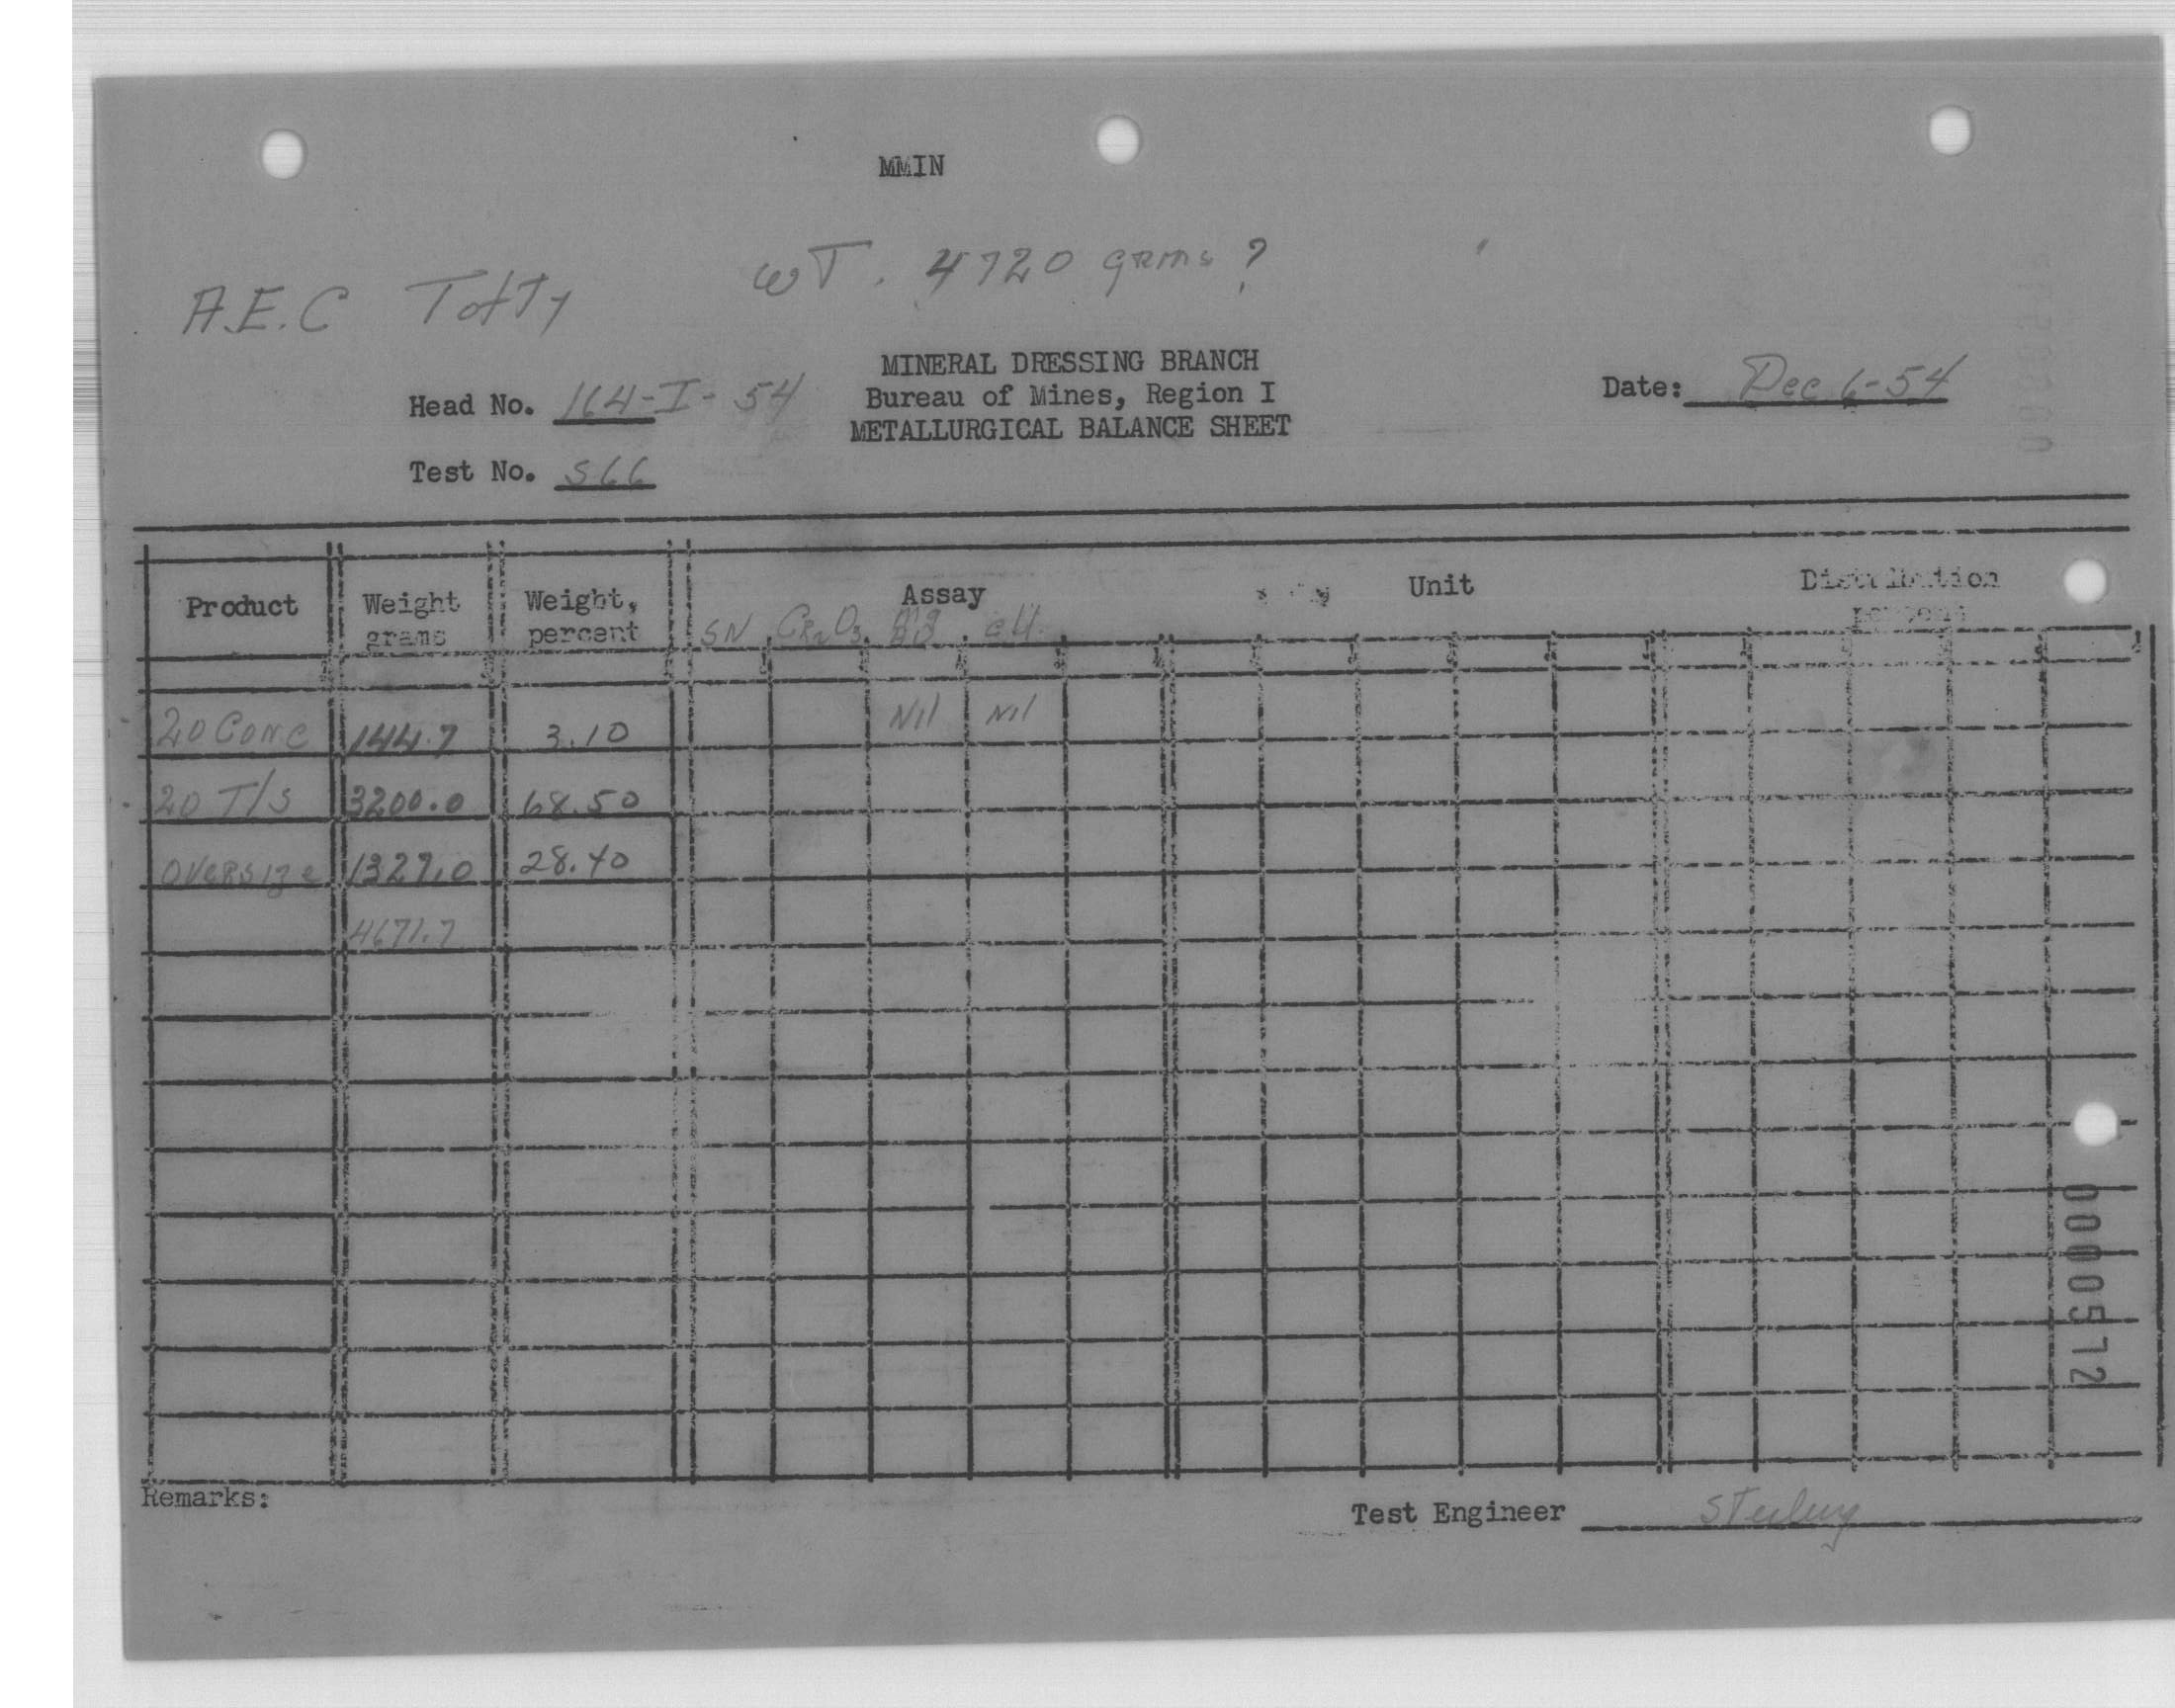 MMIN
WT. 4720 grms ?
A.E.C Tofty
MINERAL DRESSING BRANCH
Head No. 164-I-54 Bureau of Mines, Region I Date: Dec 6-54
METALLURGICAL BALANCE SHEET
Test No. S66
Product Weight grams Weight, percent Assay Unit Distribution percent
SN Cr2O3 eU
20 Conc 144.7 3.10 Nil Nil
20 T/S 3200.0 68.50
Oversize 1327.0 28.40
4671.7
Remarks:
Test Engineer
0000572